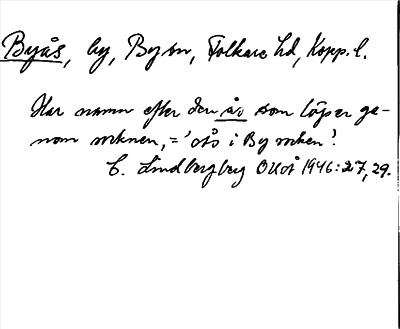 Byås, by, By sn, Folkare hd, Kopp. l.
Har namn efter den ås som löper ge-
nom socknen, = 'ås i By socken'.
C. Lindberg OUÅ 1946: 27, 29.